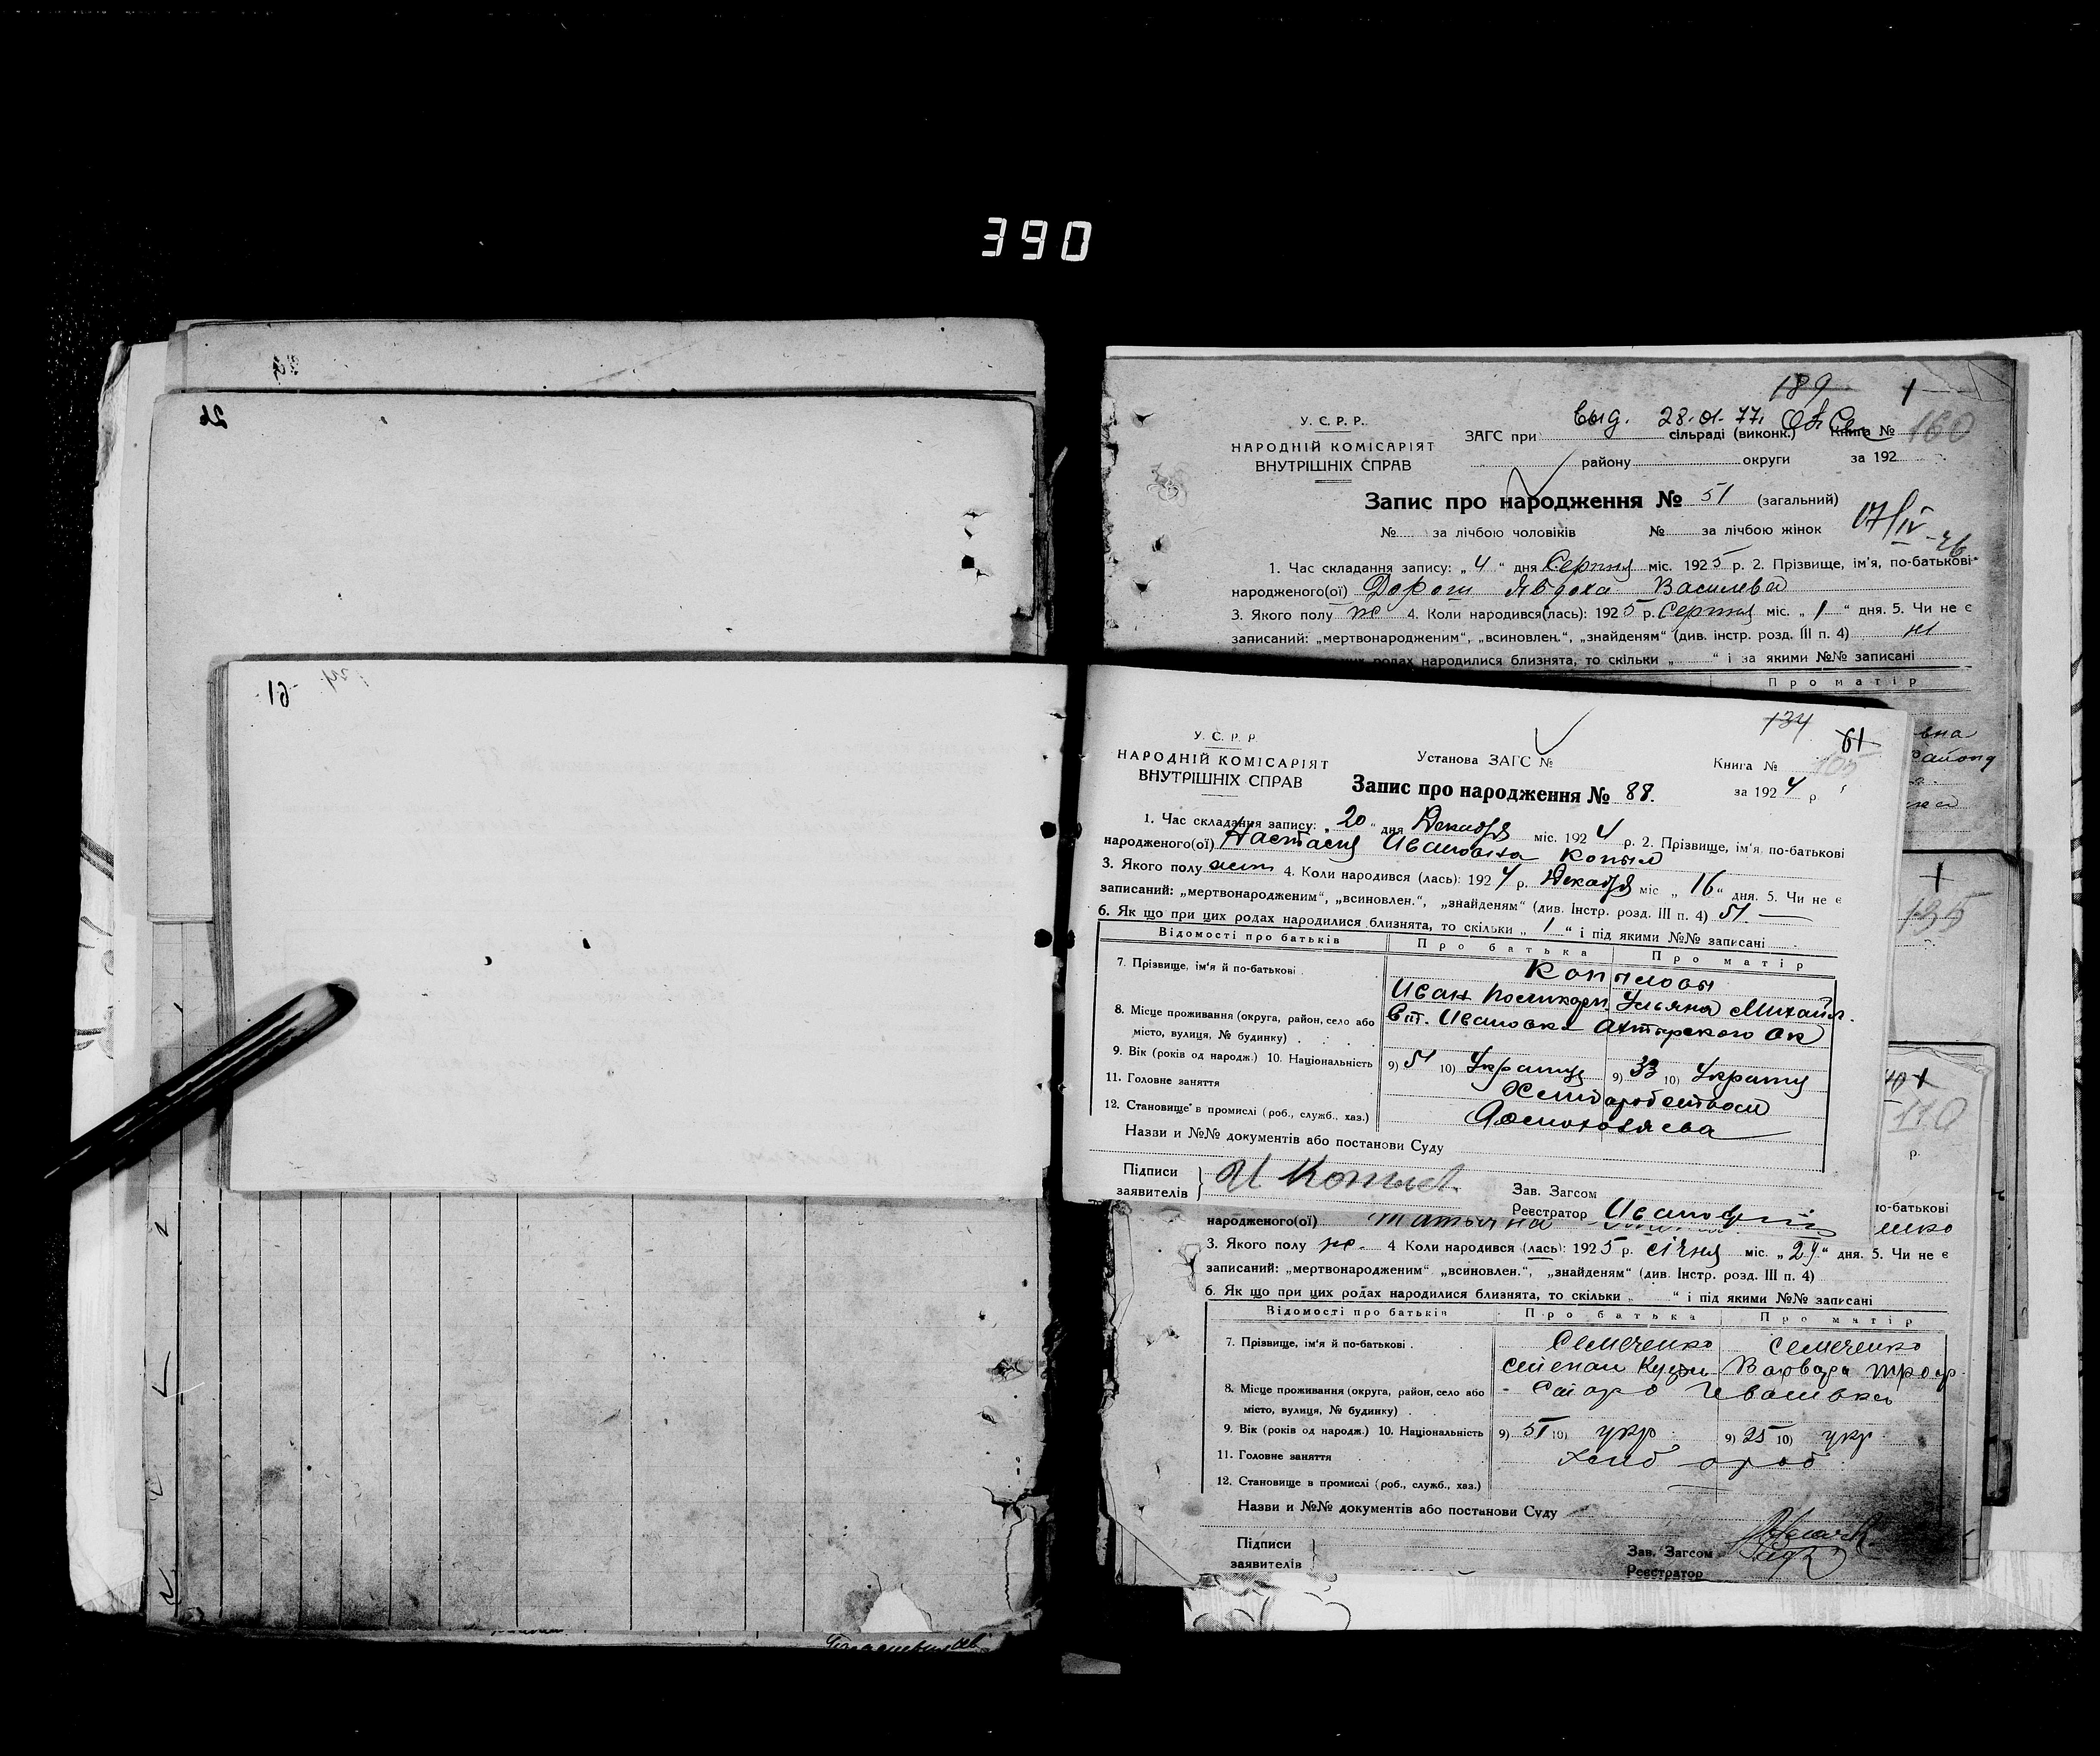 390
26
61
189 1
выд. 28.01.77.
У. С. Р. Р.
НАРОДНІЙ КОМІСАРІЯТ
ВНУТРІШНІХ СПРАВ
ЗАГС при сільраді (виконк.) Книга № 160
району округи за 192
Запис про народження № 51 (загальний)
№ за лічбою чоловіків № за лічбою жінок
17/IV-26
1. Час складання запису: „ 4 “ дня Серпня міс. 1925 р. 2. Прізвище, ім'я, по-батькові
народженого(ої) Дорош Явдоха Василева
3. Якого полу же 4. Коли народився(лась): 1925 р. Серпня міс. „ 1 “ дня. 5. Чи не є
записаний: „мертвонародженим“, „всиновлен.“, „знайденям“ (див. інстр. розд. III п. 4) ні
родах народилися близнята, то скільки „ “ і за якими №№ записані
Про матір
вна
району
134 61
105
У. С. Р. Р.
НАРОДНІЙ КОМІСАРІЯТ
ВНУТРІШНІХ СПРАВ
Установа ЗАГС № Книга №
Запис про народження № 88. за 1924 р.
1. Час складання запису: „ 20 “ дня Декабря міс. 1924 р. 2. Прізвище, ім'я, по-батькові
народженого(ої) Настасия Ивановна Копыл
3. Якого полу 4. Коли народився (лась): 1924 р. Декабря міс „ 16 “ дня. 5. Чи не є
записаний: „мертвонародженим“, „всиновлен.“, „знайденям“ (див. Інстр. розд. III п. 4)
6. Як що при цих родах народилися близнята, то скільки „ 1 “ і під якими №№ записані
Відомості про батьків Про батька Про матір
7. Прізвище, ім'я й по-батькові Копыловы
Иван Поликарп. Ульяна Михайл.
8. Місце проживання (округа, район, село або місто, вулиця, № будинку) Ивановка Ахтырского Ок
9. Вік (років од народж.) 10. Національність 9) 51 10) 9) 33 10)
11. Головне заняття
12. Становище в промислі (роб., служб., хаз.)
Назви и №№ документів або постанови Суду
Підписи
заявителів И Копыл
Зав. Загсом
Реєстратор
135
110
р.
по-батькові
народженого(ої) Татьяна
3. Якого полу же. 4 Коли народився (лась): 1925 р. січня міс. „ 29 “ дня. 5. Чи не є
записаний: „мертвонародженим“ „всиновлен.“, „знайденям“ (див. Інстр. розд. III п. 4)
6. Як що при цих родах народилися близнята, то скільки „ “ і під якими №№ записані
Відомості про батьків Про батька Про матір
7. Прізвище, ім'я й по-батькові Семеченко Семеченко
Варвара Троф.
8. Місце проживання (округа, район, село або місто, вулиця, № будинку)
9. Вік (років од народж.) 10. Національність 9) 51 10) укр 9) 25 10) укр.
11. Головне заняття хліб ороб
12. Становище в промислі (роб., служб., хаз.)
Назви и №№ документів або постанови Суду
Підписи
заявителів
Зав. Загсом
Реєстратор